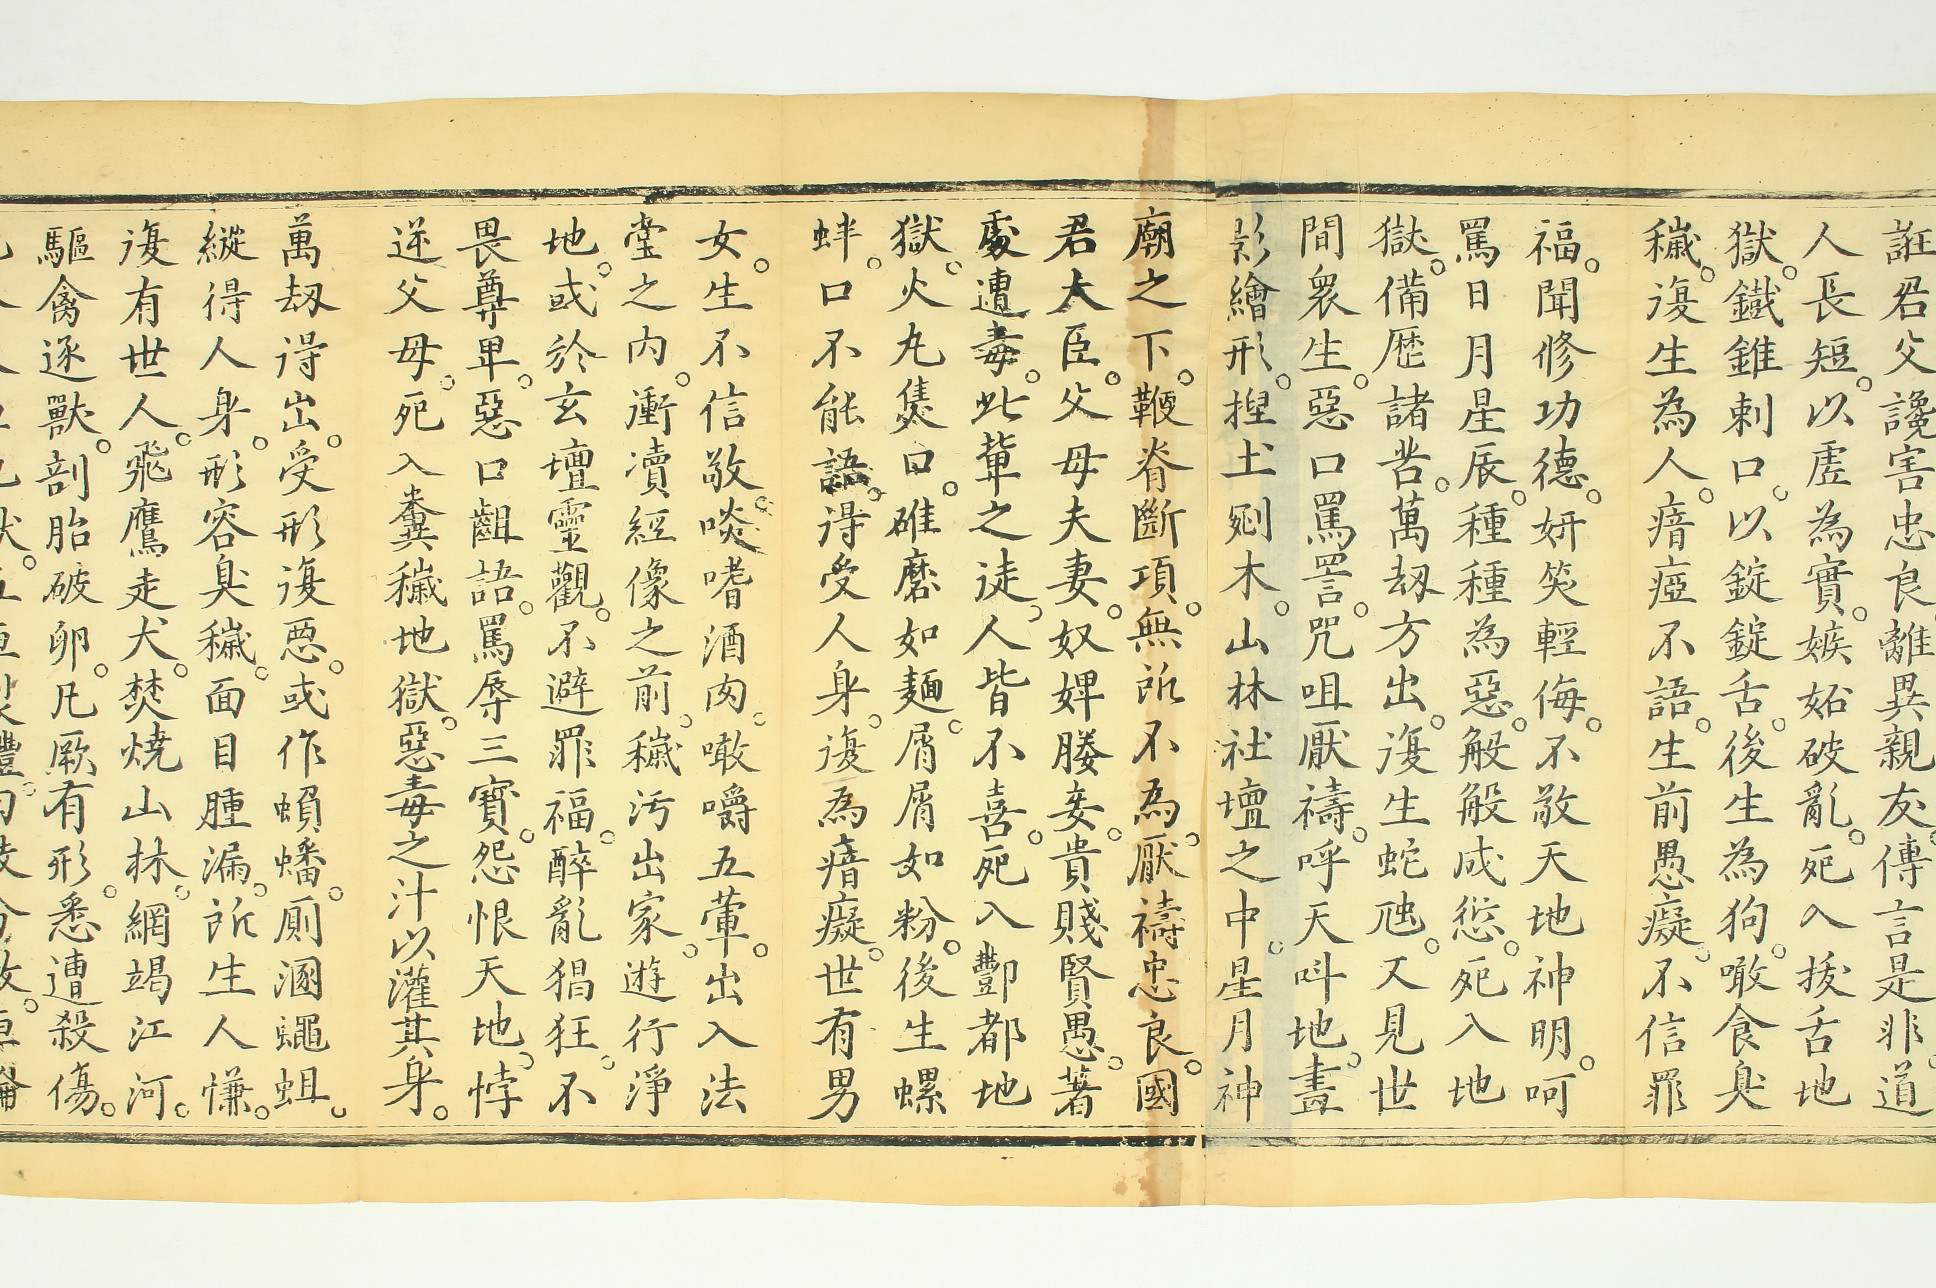 誑君父讒害忠良離異親友傳言是非道
人長短以虛為實嫉妬破亂死入拔舌地
獄鐵錐刺口以錠錠舌後生為狗噉食臭
穢復生為人瘖瘂不語生前愚癡不信罪
福聞修功德妍笑輕侮不敬天地神明呵
罵日月星辰種種為惡般般成愆死入地
獄備歷諸苦萬劫方出復生蛇虺又見世
間衆生惡口罵詈咒咀厭禱呼天呌地畫
影繪形揑土剜木山林社壇之中星月神
廟之下鞭脊斷項無所不為厭禱忠良國
君大臣父母夫妻奴婢媵妾貴賤賢愚著
處遭毒此輩之徒人皆不喜死入酆都地
獄火丸煲口碓磨如麵屑屑如粉後生螺
蚌口不能語得受人身復為瘖癡世有男
女生不信敬啖嗜酒肉噉嚼五葷出入法
堂之内衝瀆經像之前穢污出家遊行淨
地或於玄壇靈觀不避罪福醉亂猖狂不
畏尊卑惡口齟語罵辱三寶怨恨天地悖
逆父母死入糞穢地獄惡毒之汁以灌其身
萬劫得出受形復惡或作蝜蟠厠溷蠅蛆
縱得人身形容臭穢面目腫漏所生人慊
復有世人飛鷹走犬焚燒山林網竭江河
驅禽逐獸剖胎破卵凡厥有形悉遭殺傷